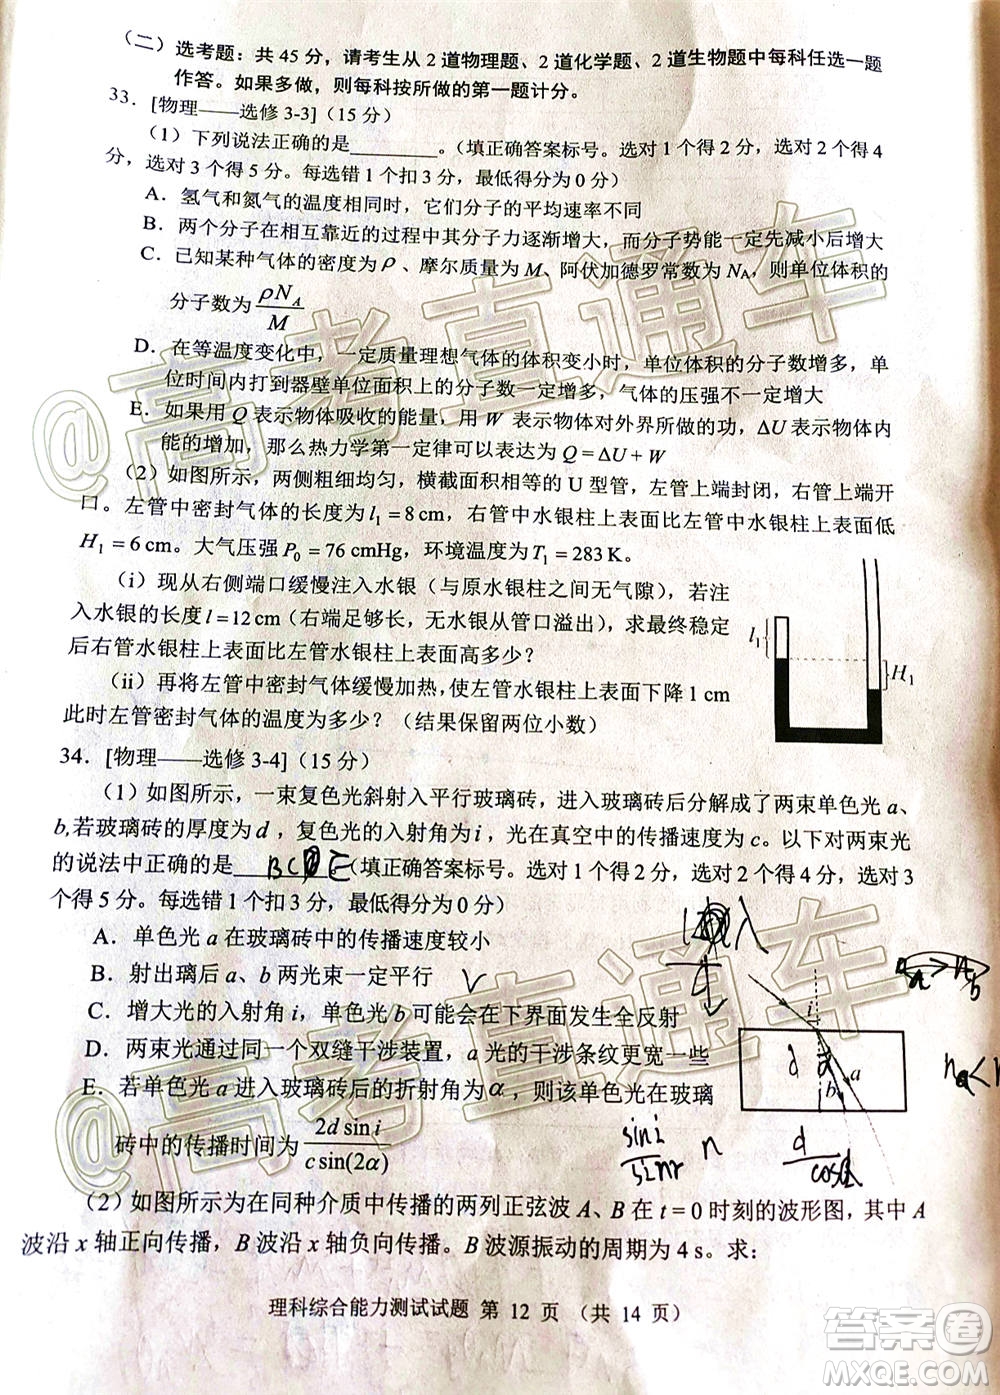 （二）选考题：共 45 分，请考生从 2 道物理题、2 道化学题、2 道生物题中每科任选一题
作答。如果多做，则每科按所做的第一题计分。
33．[物理——选修 3-3]（15 分）
（1）下列说法正确的是________。（填正确答案标号。选对 1 个得 2 分，选对 2 个得 4
分，选对 3 个得 5 分。每选错 1 个扣 3 分，最低得分为 0 分）
A．氢气和氮气的温度相同时，它们分子的平均速率不同
B．两个分子在相互靠近的过程中其分子力逐渐增大，而分子势能一定先减小后增大
C．已知某种气体的密度为 ρ、摩尔质量为 M、阿伏加德罗常数为 NA，则单位体积的
分子数为 ρNA/M
D．在等温度变化中，一定质量理想气体的体积变小时，单位体积的分子数增多，单
位时间内打到器壁单位面积上的分子数一定增多，气体的压强不一定增大
E．如果用 Q 表示物体吸收的能量，用 W 表示物体对外界所做的功，ΔU 表示物体内
能的增加，那么热力学第一定律可以表达为 Q = ΔU + W
（2）如图所示，两侧粗细均匀，横截面积相等的 U 型管，左管上端封闭，右管上端开
口。左管中密封气体的长度为 l₁ = 8 cm，右管中水银柱上表面比左管中水银柱上表面低
H₁ = 6 cm。大气压强 P₀ = 76 cmHg，环境温度为 T₁ = 283 K。
（i）现从右侧端口缓慢注入水银（与原水银柱之间无气隙），若注
入水银的长度 l = 12 cm（右端足够长，无水银从管口溢出），求最终稳定
后右管水银柱上表面比左管水银柱上表面高多少？
（ii）再将左管中密封气体缓慢加热，使左管水银柱上表面下降 1 cm
此时左管密封气体的温度为多少？（结果保留两位小数）
l₁
H₁
34．[物理——选修 3-4]（15 分）
（1）如图所示，一束复色光斜射入平行玻璃砖，进入玻璃砖后分解成了两束单色光 a、
b,若玻璃砖的厚度为 d ，复色光的入射角为 i，光在真空中的传播速度为 c。以下对两束光
的说法中正确的是________（填正确答案标号。选对 1 个得 2 分，选对 2 个得 4 分，选对 3
个得 5 分。每选错 1 个扣 3 分，最低得分为 0 分）
A．单色光 a 在玻璃砖中的传播速度较小
B．射出璃后 a、b 两光束一定平行
C．增大光的入射角 i，单色光 b 可能会在下界面发生全反射
D．两束光通过同一个双缝干涉装置，a 光的干涉条纹更宽一些
E．若单色光 a 进入玻璃砖后的折射角为 α，则该单色光在玻璃
砖中的传播时间为 2d sin i / c sin(2α)
i
d
α
a
b
（2）如图所示为在同种介质中传播的两列正弦波 A、B 在 t = 0 时刻的波形图，其中 A
波沿 x 轴正向传播，B 波沿 x 轴负向传播。B 波源振动的周期为 4 s。求：
理科综合能力测试试题 第 12 页 （共 14 页）
@高考直通车
@高考直通车
答案圈
MXQE.COM